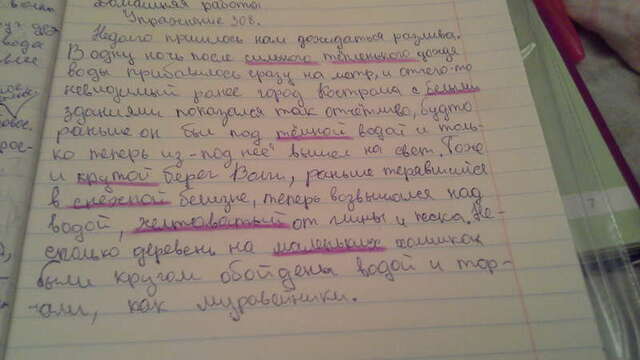 Домашняя работа.
Упражнение 308.
Недолго пришлось нам дожидаться разлива.
В одну ночь после сильного тёпленького дождя
воды прибавилось сразу на метр, и отчего-то
невидимый ранее город Кострома с белыми
зданиями показался так отчётливо, будто
раньше он был под тёмной водой и толь-
ко теперь из-под неё вышел на свет. Тоже
и крутой берег Волги, раньше терявшийся
в снежной белизне, теперь возвышался над
водой, желтоватый от глины и песка. Не-
сколько деревень на маленьких холмиках
были кругом обойдены водой и тор-
чали, как муравейники.